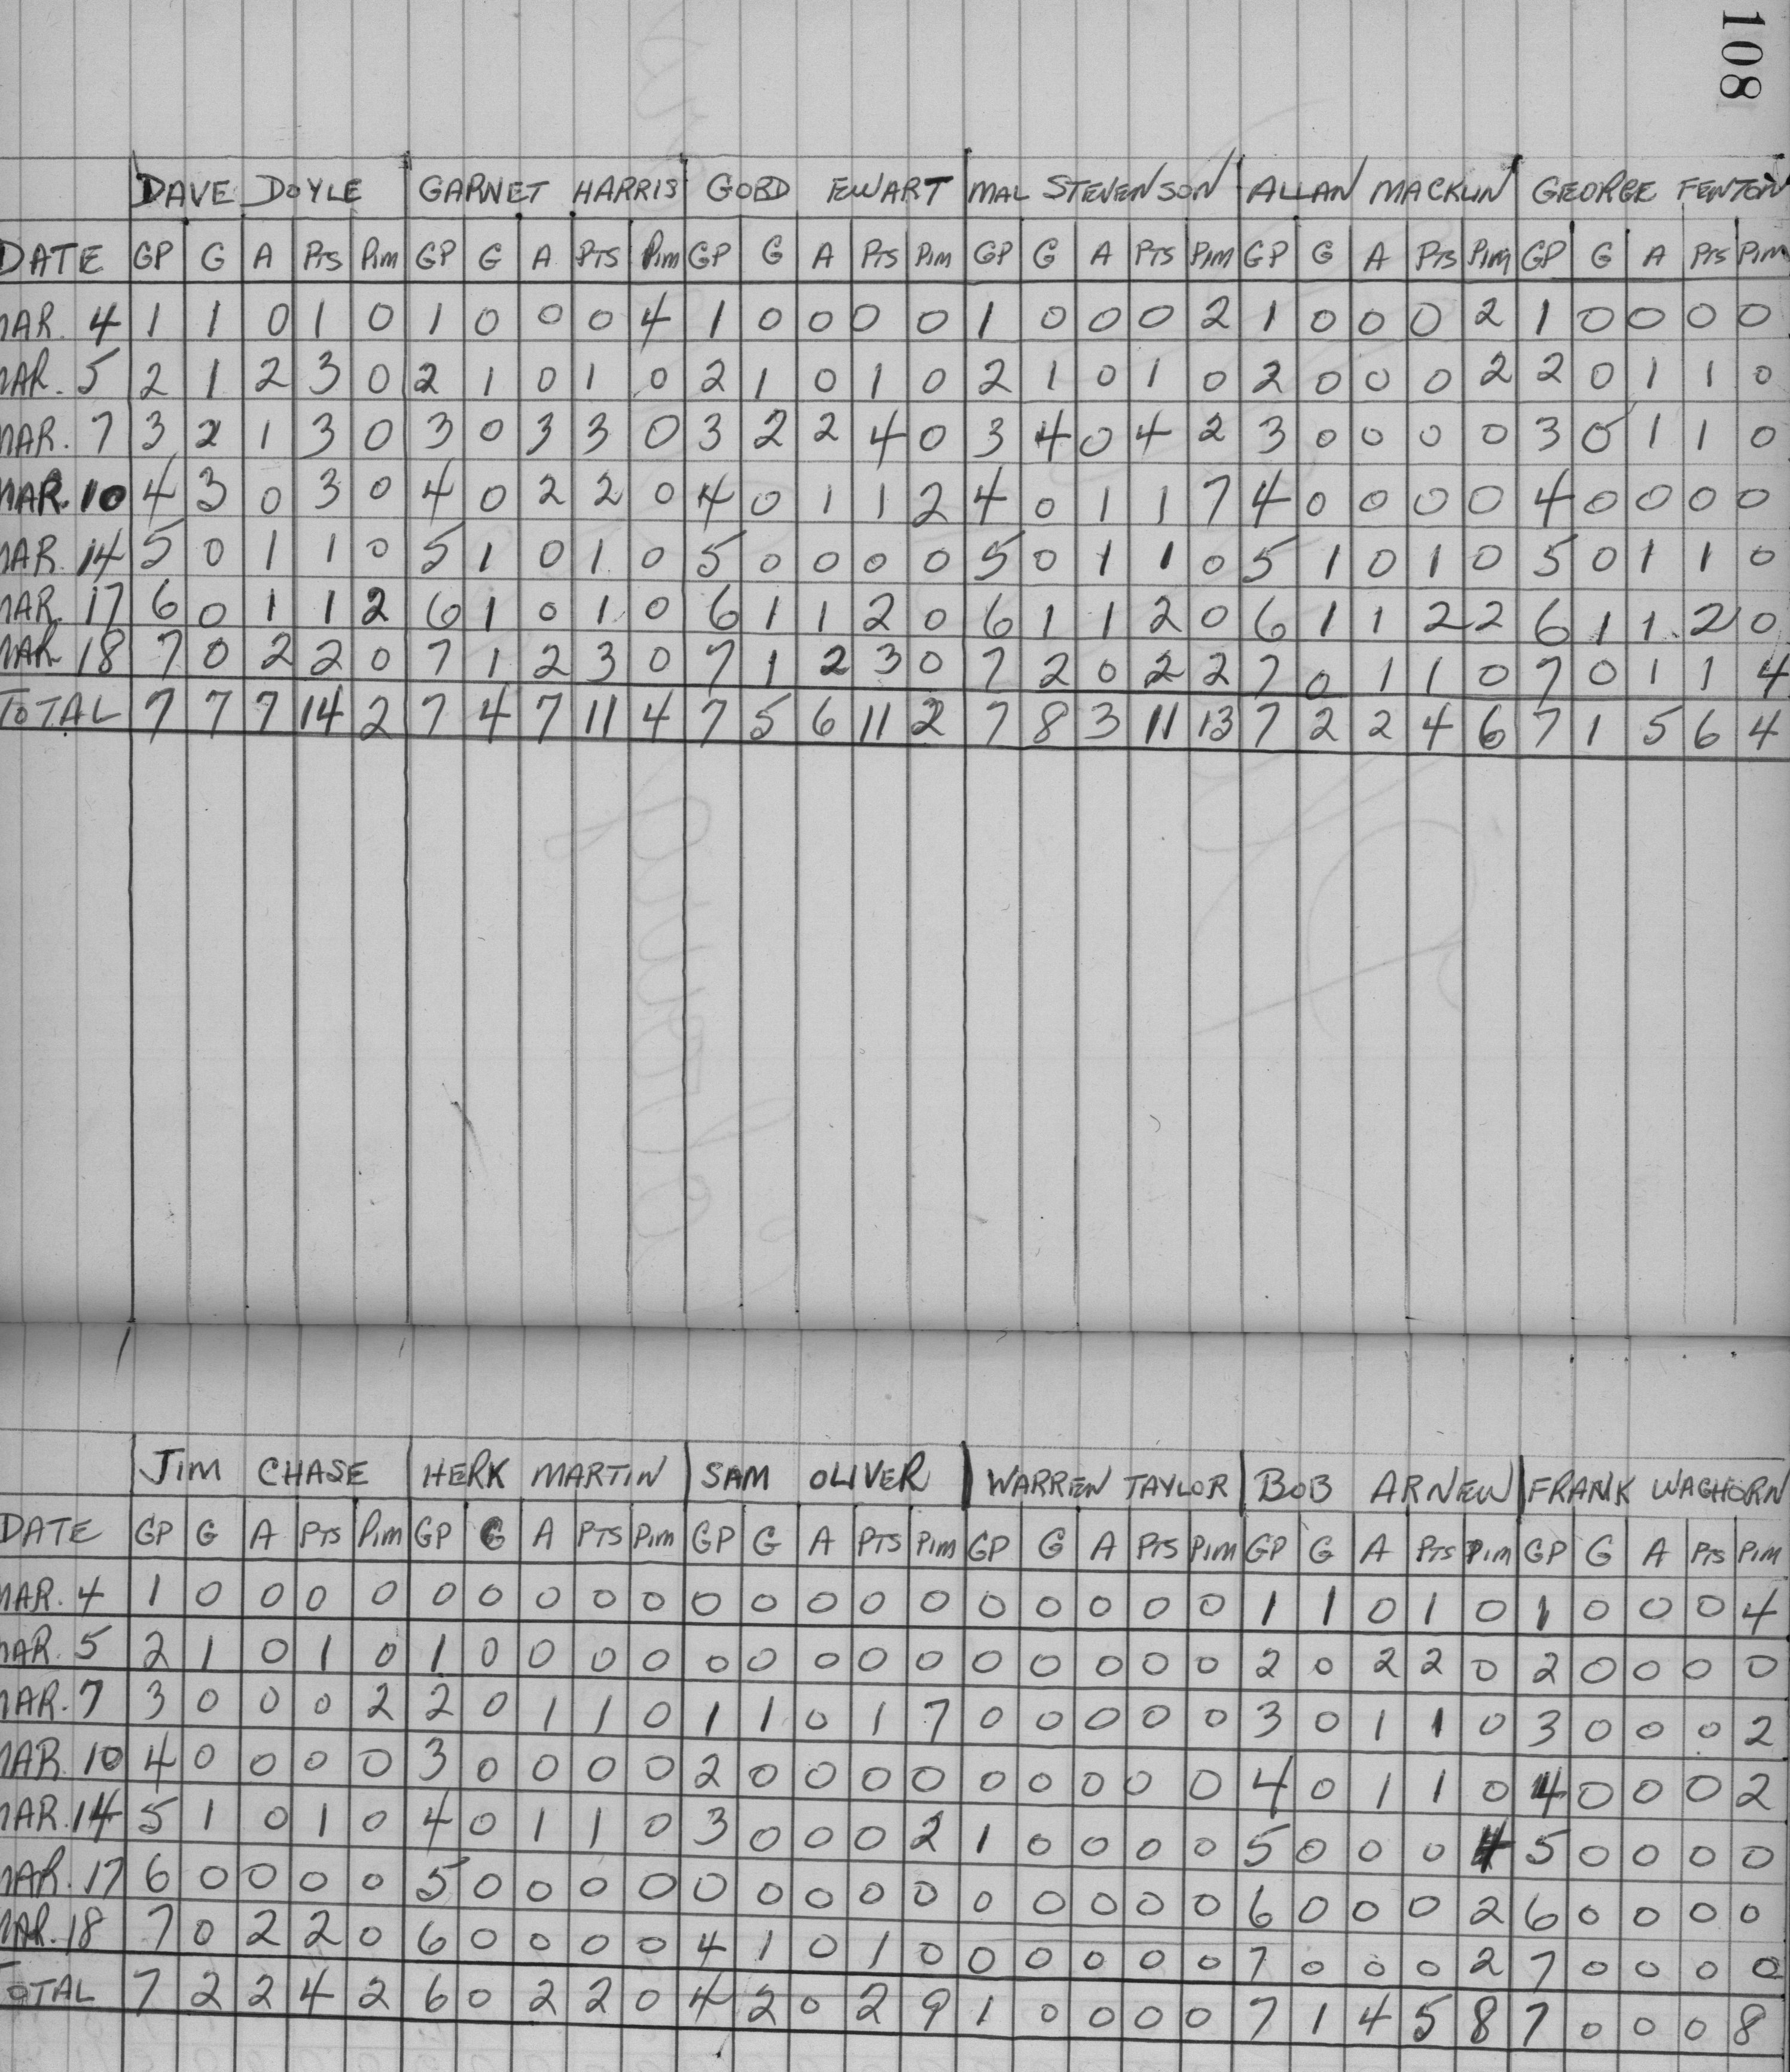 108
DAVE DOYLE GARNET HARRIS GORD EWART MAL STEVENSON ALLAN MACKLIN GEORGE FENTON
DATE GP G A PTS PIM GP G A PTS PIM GP G A PTS PIM GP G A PTS PIM GP G A PTS PIM GP G A PTS PIM
MAR. 4 1 1 0 1 0 1 0 0 0 4 1 0 0 0 0 1 0 0 0 2 1 0 0 0 2 1 0 0 0 0
MAR. 5 2 1 2 3 0 2 1 0 1 0 2 1 0 1 0 2 1 0 1 0 2 0 0 0 2 2 0 1 1 0
MAR. 7 3 2 1 3 0 3 0 3 3 0 3 2 2 4 0 3 4 0 4 2 3 0 0 0 0 3 0 1 1 0
MAR. 10 4 3 0 3 0 4 0 2 2 0 4 0 1 1 2 4 0 1 1 7 4 0 0 0 0 4 0 0 0 0
MAR. 14 5 0 1 1 0 5 1 0 1 0 5 0 0 0 0 5 0 1 1 0 5 1 0 1 0 5 0 1 1 0
MAR. 17 6 0 1 1 2 6 1 0 1 0 6 1 1 2 0 6 1 1 2 0 6 1 1 2 2 6 1 1 2 0
MAR. 18 7 0 2 2 0 7 1 2 3 0 7 1 2 3 0 7 2 0 2 2 7 0 1 1 0 7 0 1 1 4
TOTAL 7 7 7 14 2 7 4 7 11 4 7 5 6 11 2 7 8 3 11 13 7 2 2 4 6 7 1 5 6 4
JIM CHASE HERK MARTIN SAM OLIVER WARREN TAYLOR BOB ARNEW FRANK WAGHORN
DATE GP G A PTS PIM GP G A PTS PIM GP G A PTS PIM GP G A PTS PIM GP G A PTS PIM GP G A PTS PIM
MAR. 4 1 0 0 0 0 0 0 0 0 0 0 0 0 0 0 0 0 0 0 0 1 1 0 1 0 1 0 0 0 4
MAR. 5 2 1 0 1 0 1 0 0 0 0 0 0 0 0 0 0 0 0 0 0 2 0 2 2 0 2 0 0 0 0
MAR. 7 3 0 0 0 2 2 0 1 1 0 1 1 0 1 7 0 0 0 0 0 3 0 1 1 0 3 0 0 0 2
MAR. 10 4 0 0 0 0 3 0 0 0 0 2 0 0 0 0 0 0 0 0 0 4 0 1 1 0 4 0 0 0 2
MAR. 14 5 1 0 1 0 4 0 1 1 0 3 0 0 0 2 1 0 0 0 0 5 0 0 0 4 5 0 0 0 0
MAR. 17 6 0 0 0 0 5 0 0 0 0 0 0 0 0 0 0 0 0 0 0 6 0 0 0 2 6 0 0 0 0
MAR. 18 7 0 2 2 0 6 0 0 0 0 4 1 0 1 0 0 0 0 0 0 7 0 0 0 2 7 0 0 0 0
TOTAL 7 2 2 4 2 6 0 2 2 0 4 2 0 2 9 1 0 0 0 0 7 1 4 5 8 7 0 0 0 8